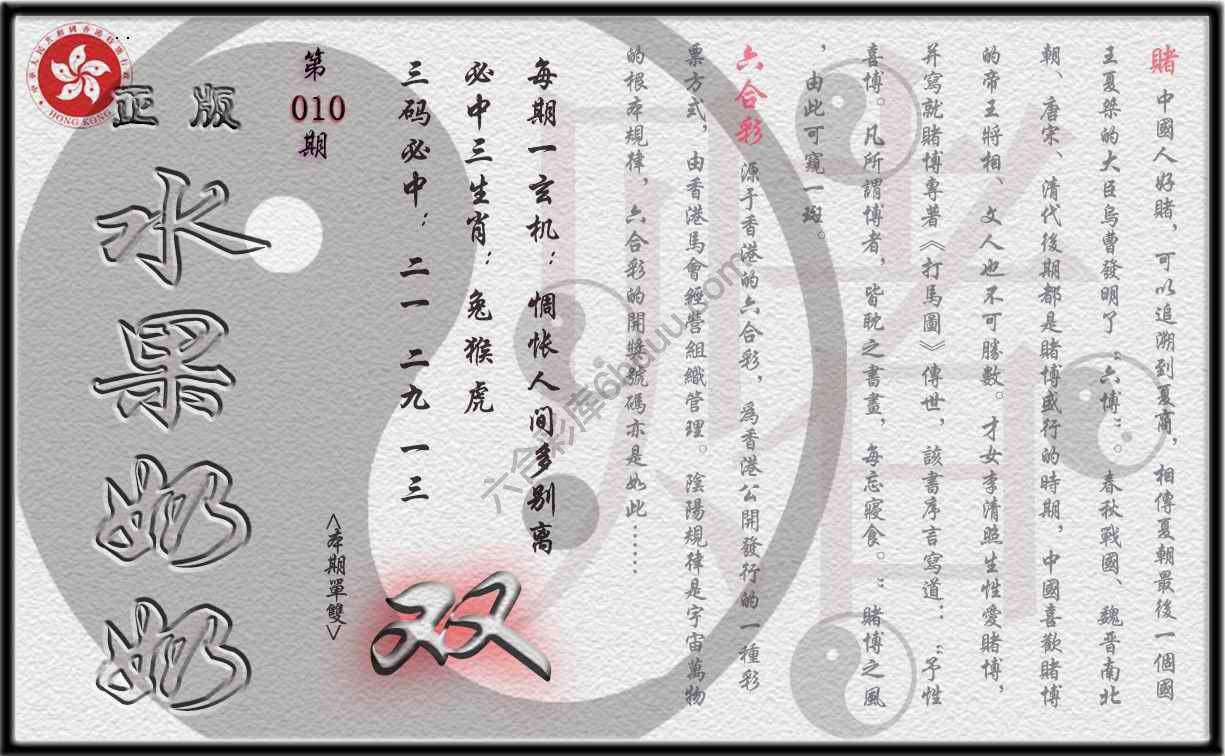 賭 中國人好賭，可以追溯到夏商，相傳夏朝最後一個國
王夏桀的大臣烏曹發明了“六博”。春秋戰國、魏晋南北
朝、唐宋、清代後期都是賭博盛行的時期，中國喜歡賭博
的帝王將相、文人也不可勝數。才女李清照生性愛賭博，
并寫就賭博專著《打馬圖》傳世，該書序言寫道：“予性
喜博。凡所謂博者，皆耽之書畫，每忘寢食。”賭博之風
，由此可窺一斑。
六合彩 源于香港的六合彩，爲香港公開發行的一種彩
票方式，由香港馬會經營組織管理。陰陽規律是宇宙萬物
的根本規律，六合彩的開獎號碼亦是如此……
每期一玄机：惆怅人间多别离
必中三生肖：兔猴虎
三码必中：二一 二九 一三
<本期單雙>
双
第
010
期
正版
水果奶奶
中華人民共和國香港特別行政區
HONG KONG
六合彩库6hduu.com